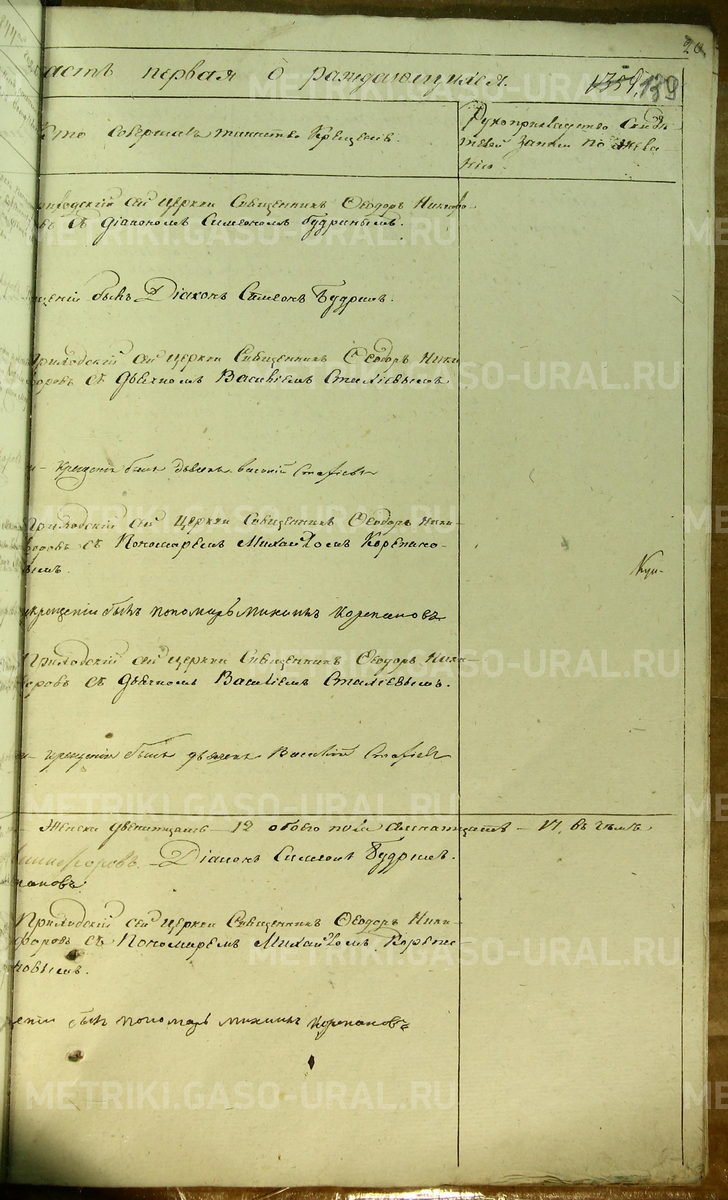 20
асть первая о раждающихся.
1359, 139
Кто совершалъ таинство Крещенія.
Рукоприкладство Свидѣ-
телей записи по жела-
нію
приходскій сей церкви Священникъ Ѳеодоръ Никифо-
въ съ Діакономъ Симеономъ Будринымъ.
щеніи былъ Діаконъ Симеонъ Будринъ.
Приходскій сей церкви Священникъ Ѳеодоръ Ники
форовъ съ дьячкомъ Василіемъ Стафіевымъ
и крещеніи былъ дьячекъ Василій Стафіевъ
Приходскій сей церкви Священникъ Ѳеодоръ Ники-
форовъ съ Пономаремъ Михайломъ Корепано-
вымъ.
Куп-
крещеніи былъ пономарь Михаилъ Корепановъ
Приходскій сей церкви Священникъ Ѳеодоръ Ники-
форовъ съ дьячкомъ Василіемъ Стафіевымъ.
и крещеніи былъ дьячекъ Василій Стафіев
Женска двенатцать 12 обоего пола семнатцать 17, въ чемъ
Никифоровъ. Діаконъ Симеонъ Будринъ.
пановъ
Приходскій сей церкви Священникъ Ѳеодоръ Ники-
форовъ съ Пономаремъ Михайломъ Корепа-
новымъ.
щеніи былъ пономарь Михаилъ Корепановъ
METRIKI.GASO-URAL.RU
METRIKI.GASO-URAL.RU
METRIKI.GASO-URAL.RU
METRIKI.GASO-URAL.RU
METRIKI.GASO-URAL.RU
METRIKI.GASO-URAL.RU
METRIKI.GASO-URAL.RU
METRIKI.GASO-URAL.RU